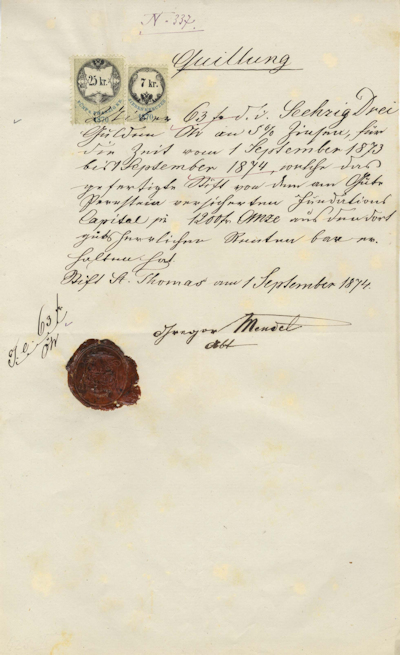 N - 337.
25 kr.
7 kr.
Quittung
63 f d. i. Sechzig Drei
Gulden ÖW an 5% Zinsen, für
die Zeit vom 1 September 1873
bis 1 September 1874, welche das
gefertigte Stift von dem am Gute
Pernstein versicherten Fundations
Capital p 1200 f. aus den dort
gutsherrlichen Renten bar er-
halten hat
Stift St. Thomas am 1 September 1874.
63 f
ÖW
Gregor Mendel
Abt